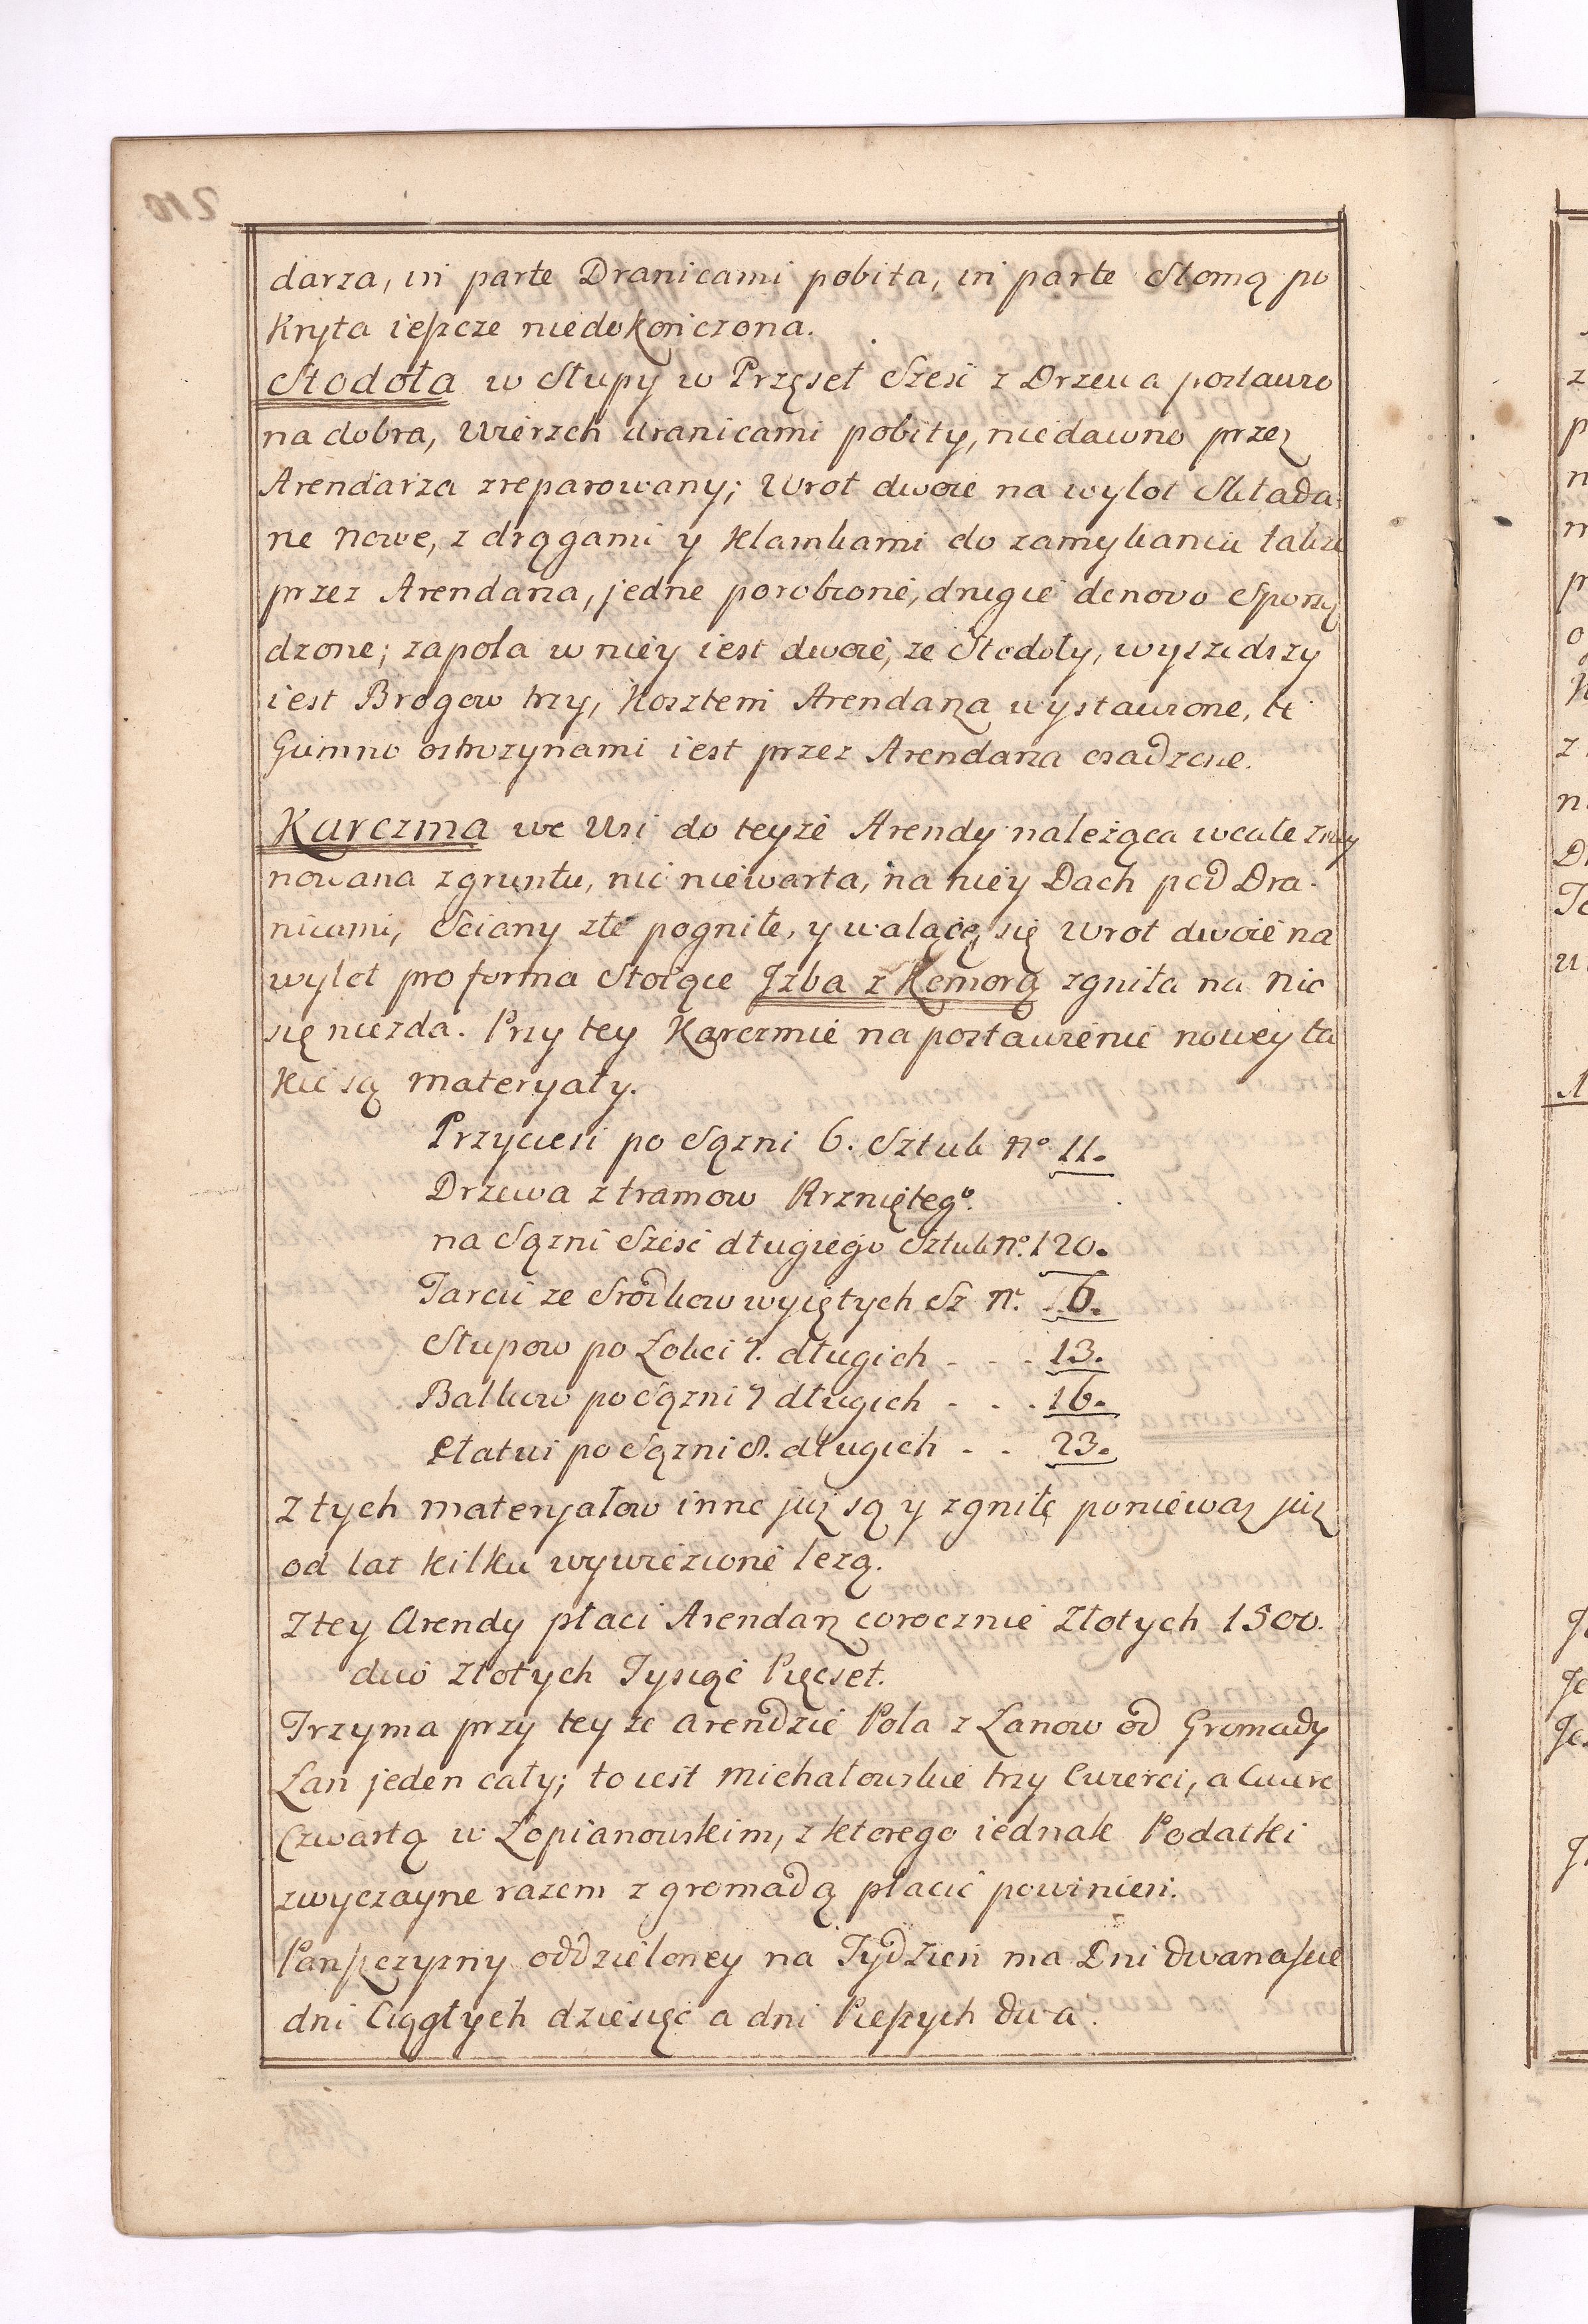 darza, in parte Dranicami pobita, in parte Słomą po
kryta ieszcze niedokończona.
Stodoła w Słupy w Przęseł Sześć z Drzewa postawio
na dobra, Wierzch dranicami pobity, niedawno przez
Arendarza zreparowany; Wrot dwoie na wylot Składa:
ne nowe, z drągami y Klamkami do zamykania także
przez Arendarza, jedne porobione, drugie denovo Sporzą
dzone; zapola w niey iest dwoie, ze Stodoły, wyszedszy
iest Brogow trzy, Kosztem Arendarza wystawione, te
Gumno ostrozynami iest przez Arendarza osadzone.
Karczma we Wsi do teyże Arendy należąca wcale zruy
nowana z gruntu, nic niewarta, na niey Dach pod Dra-
nicami, Ściany złe pogniłe, y walącę się Wrot dwoie na
wylot pro forma Stoiące Izba z Komorą zgniła na nic
się niezda. Przy tey Karczmie na postawienie nowey ta
kie są materyały.
Przyciesi po Sązni 6. Sztuk No. 11.
Drzewa z tramow Krzniętego.
na Sązni Sześć długiego Sztuk No. 120.
Tarcic ze Srodkow wyiętych Sz No. 6.
Słupow po Łokci 7. długich - - - 13.
Balkow po Sązni 7 długich - - - 16.
Płatwi po Sązni 8. długich - - 23.
Z tych materyałow inne już są y zgniłe ponieważ już
od lat kilku wywiezione leżą.
Z tey Arendy płaci Arendarz corocznie Złotych 1500.
dwo Złotych Tysiąc Pięcset.
Trzyma przy tey ze arendzie Pola z Łanow od Gromady
Łan jeden cały; to iest Michałowskie trzy Cwierci, a Cwierc
Czwartą w Łopianowskim, z ktorego iednak Podatki
zwyczayne razem z gromadą płacić powinien.
Panszczyzny oddzieloney na Tydzień ma Dni dwanaście
dni Ciągłych dziesięć a dni Pieszych dwa.